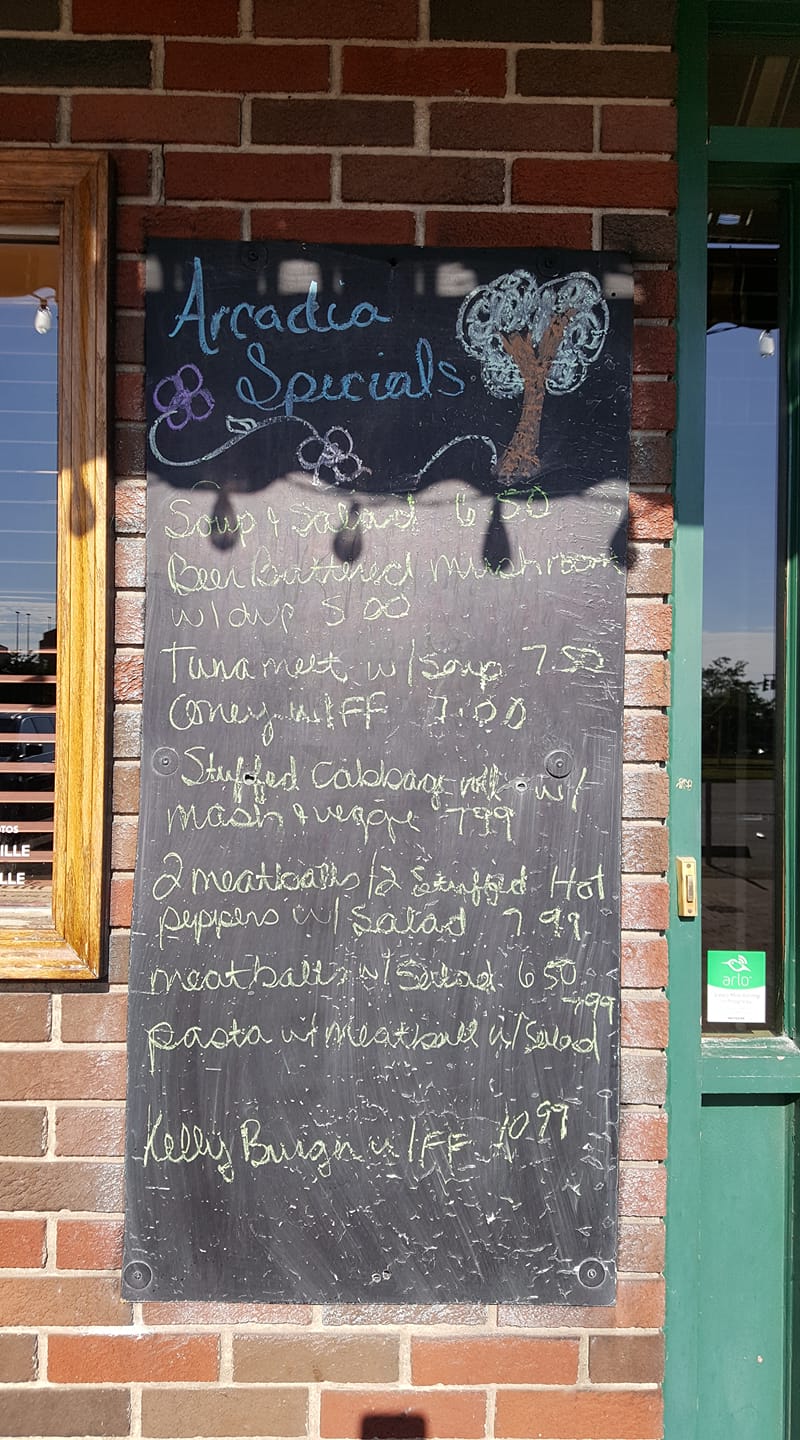 Arcadia
Specials
Soup & Salad 6 50
Beer Battered mushroom
w/dip 5 00
Tuna melt w/Soup 7.50
Coney w/FF 7.00
Stuffed Cabbage roll w/
mash & veggie 799
2 meatballs /2 Stuffed Hot
peppers w/ Salad 7.99
meatballs w/Salad 6 50
799
pasta w+ meatball w/Salad
Kelly Burger w/FF 10 99
TOS
ILLE
LLE
arlo